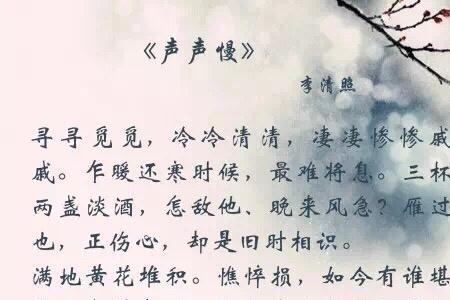 《声声慢》
李清照
寻寻觅觅，冷冷清清，凄凄惨惨戚
戚。乍暖还寒时候，最难将息。三杯
两盏淡酒，怎敌他、晚来风急？雁过
也，正伤心，却是旧时相识。
满地黄花堆积。憔悴损，如今有谁堪